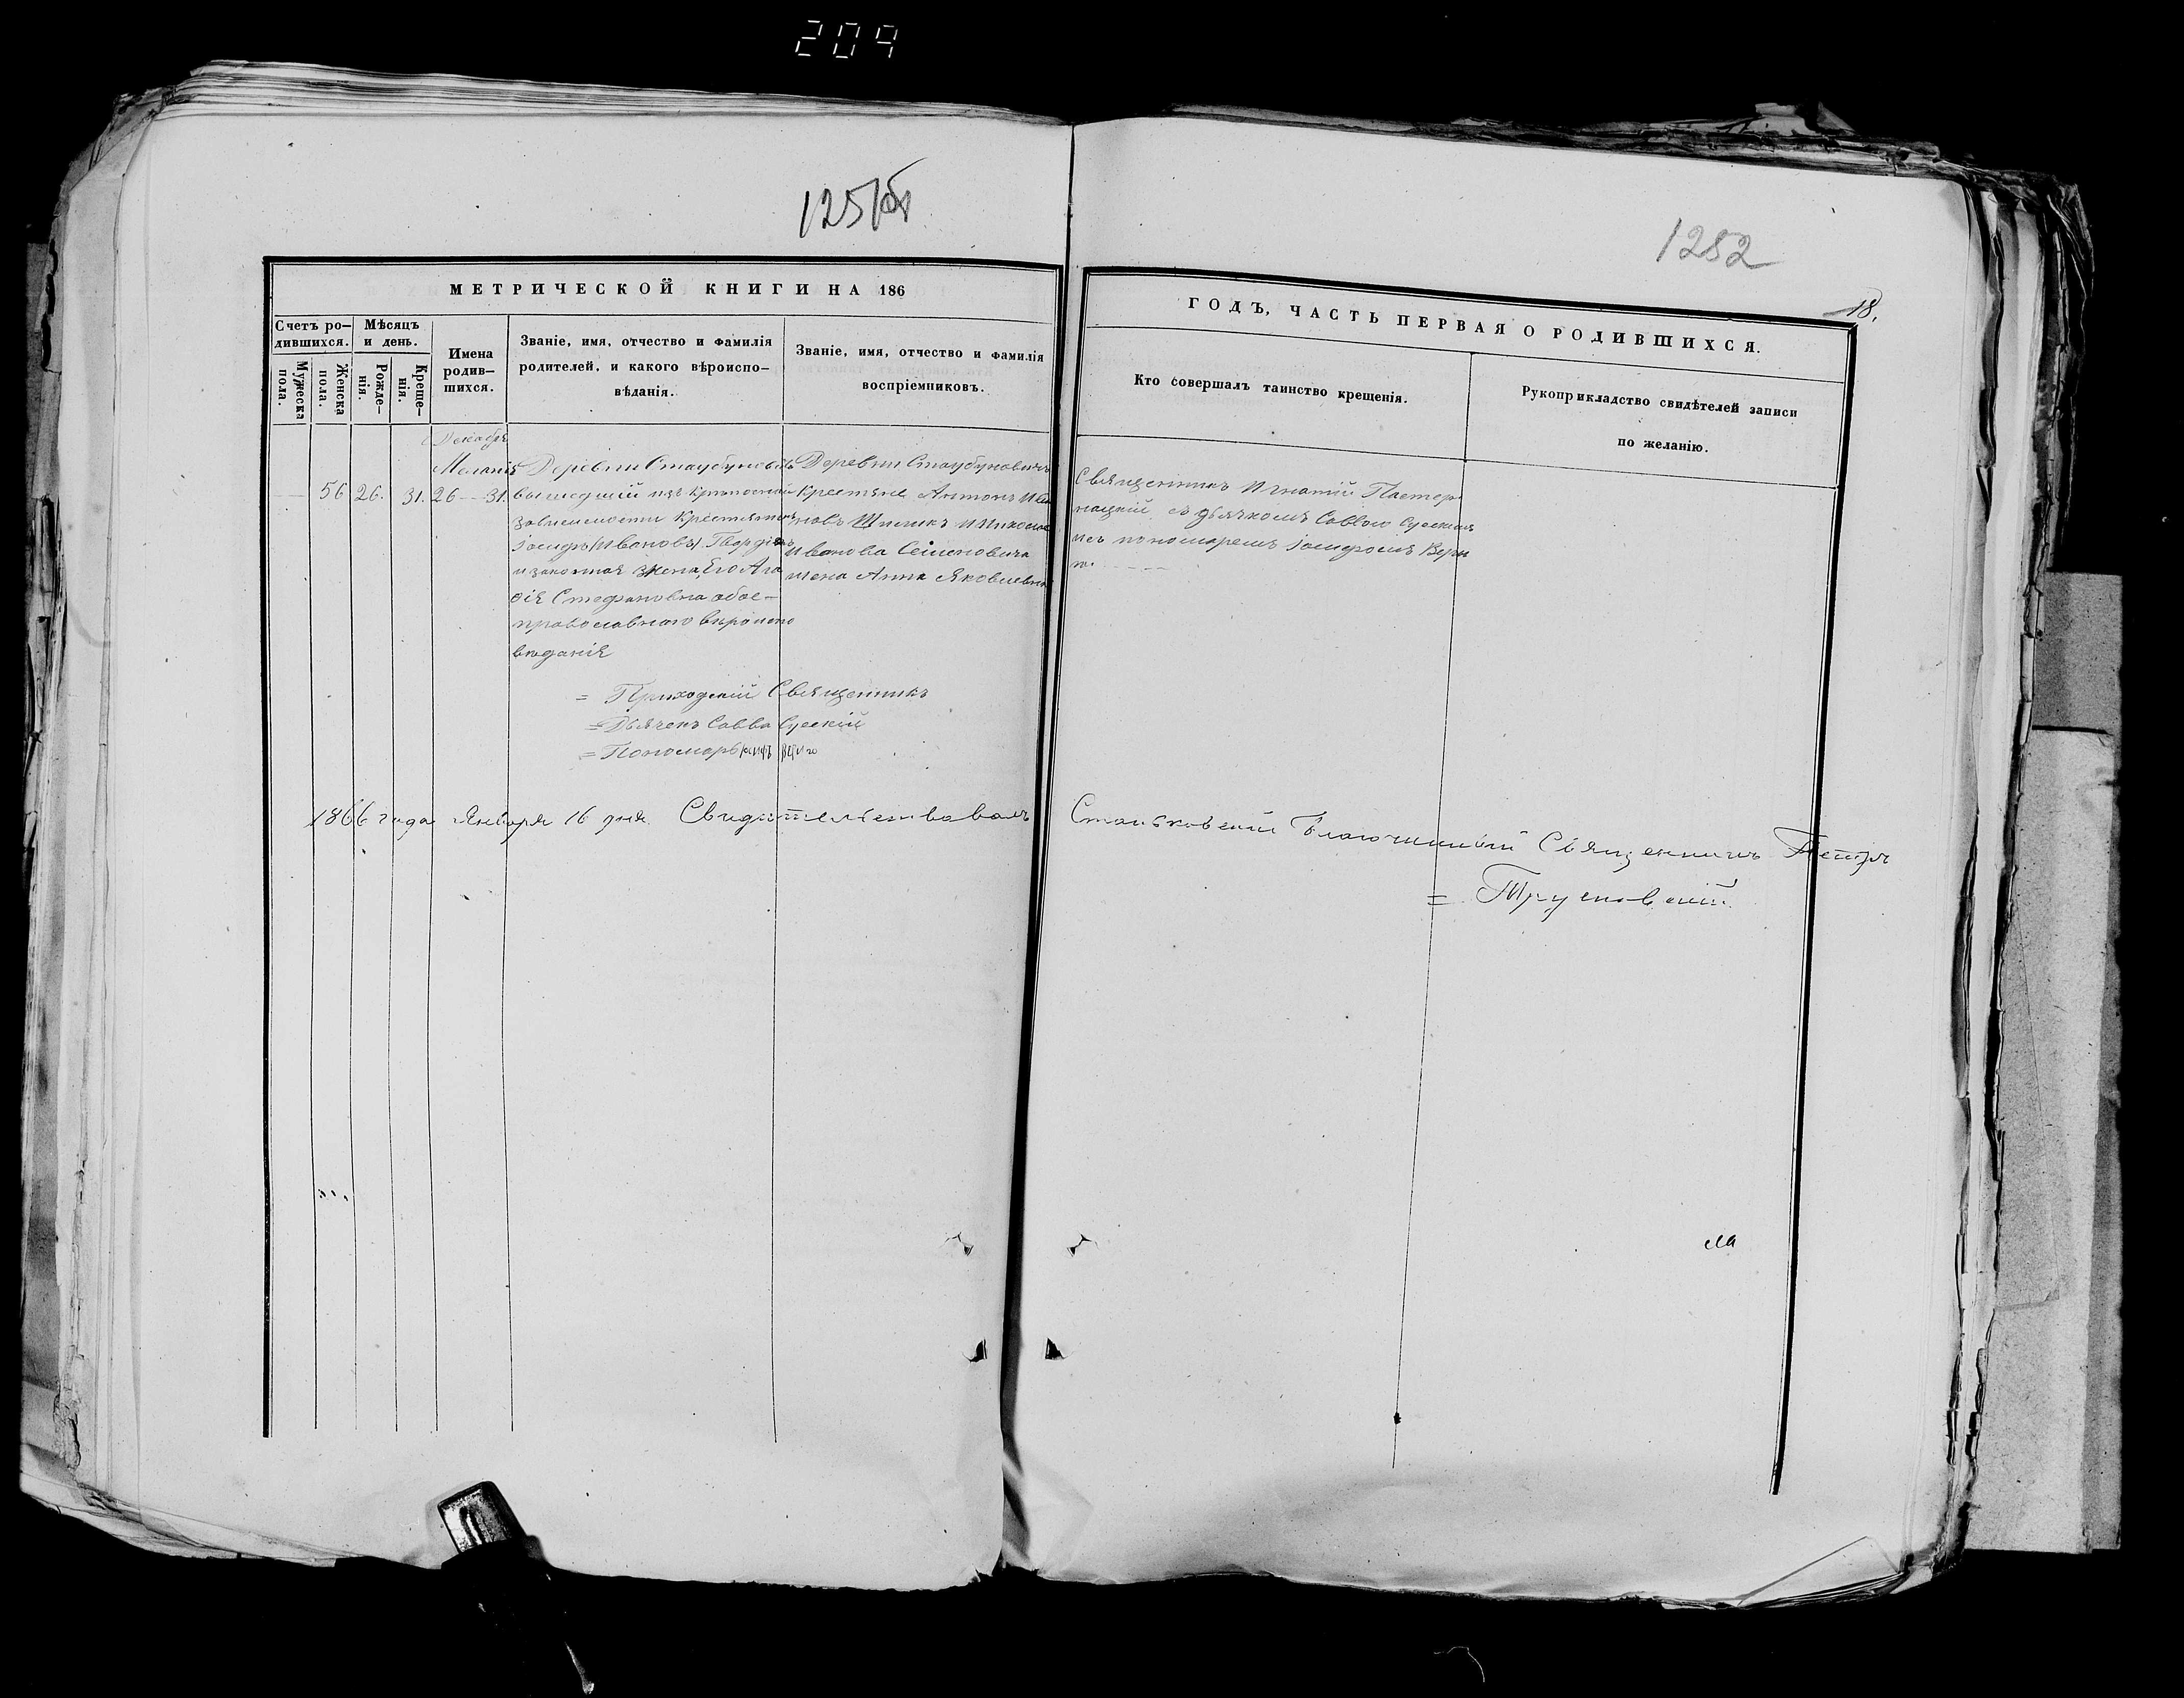 209
125 об
1252
18.
МЕТРИЧЕСКОЙ КНИГИ НА 186
ГОДЪ, ЧАСТЬ ПЕРВАЯ О РОДИВШИХСЯ.
Счетъ ро-
дившихся.
Мужеска
пола.
Женска
пола.
Мѣсяцъ
и день.
Рожде-
нія.
Креще-
нія.
Имена
родив-
шихся.
Званіе, имя, отчество и фамилія
родителей, и какого вѣроиспо-
вѣданія.
Званіе, имя, отчество и фамилія
воспріемниковъ.
Кто совершалъ таинство крещенія.
Рукоприкладство свидѣтелей записи
по желанію.
Декабря
56 26. 31.
Меланія
26 — 31.
Деревни
вышедшій изъ крѣпостной
зависимости Крестьянинъ
Іосифъ Ивановъ
и законная жена Его
Стефановна обое
православнаго вѣроиспо
вѣданія
Деревни
Крестьяне Антонъ Ива
новъ Шпилик и Николая
Иванова Семеновича
жена Анна Яковлевна
Священникъ Игнатій Пастер
нацкій съ дьячкомъ Саввою
и съ пономаремъ Іосифомъ
= Приходскій Священникъ
= Дьячекъ Савва
= Пономарь
1866 года Января 16 дня Свидѣтельствовалъ Станьковскій Благочинный Священникъ Петръ
= Трусковскій